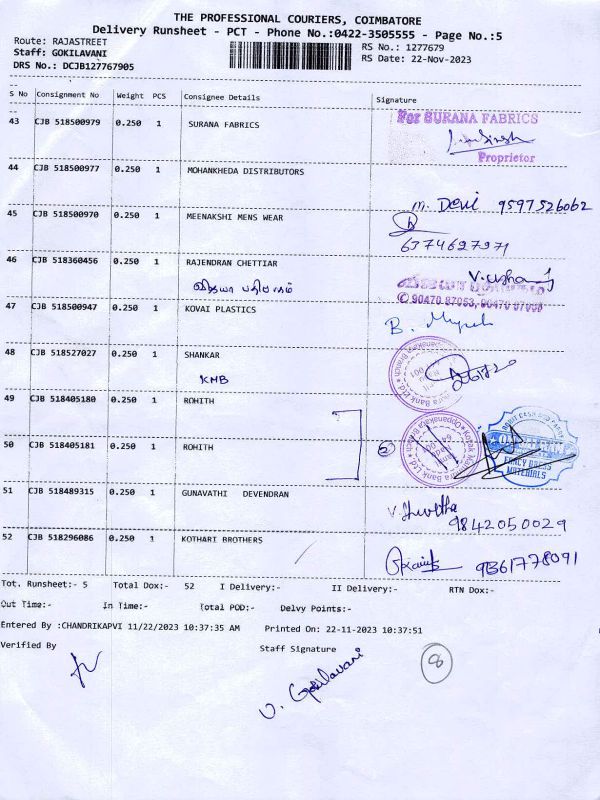 THE PROFESSIONAL COURIERS, COIMBATORE
Delivery Runsheet - PCT - Phone No.:0422-3505555 - Page No.:5
Route: RAJASTREET
RS No.: 1277679
Staff: GOKILAVANI
RS Date: 22-Nov-2023
DRS No.: DCJB127767905
S No Consignment No Weight PCS Consignee Details Signature
43 CJB 518500979 0.250 1 SURANA FABRICS
For SURANA FABRICS
Proprietor
44 CJB 518500977 0.250 1 MOHANKHEDA DISTRIBUTORS
M. Devi 9597526062
45 CJB 518500970 0.250 1 MEENAKSHI MENS WEAR
6374627971
46 CJB 518360456 0.250 1 RAJENDRAN CHETTIAR
விஜயா பதிப்பகம்
47 CJB 518500947 0.250 1 KOVAI PLASTICS
B.
48 CJB 518527027 0.250 1 SHANKAR
KMB
49 CJB 518405180 0.250 1 ROHITH
50 CJB 518405181 0.250 1 ROHITH
②
MATERIALS
51 CJB 518489315 0.250 1 GUNAVATHI DEVENDRAN
V. Shwetha
9842050029
52 CJB 518296086 0.250 1 KOTHARI BROTHERS
9361778091
Tot. Runsheet:- 5 Total Dox:- 52 I Delivery:- II Delivery:- RTN Dox:-
Out Time:- In Time:- Total POD:- Delvy Points:-
Entered By :CHANDRIKAPVI 11/22/2023 10:37:35 AM Printed On: 22-11-2023 10:37:51
Verified By Staff Signature
V. Gokilavani
8